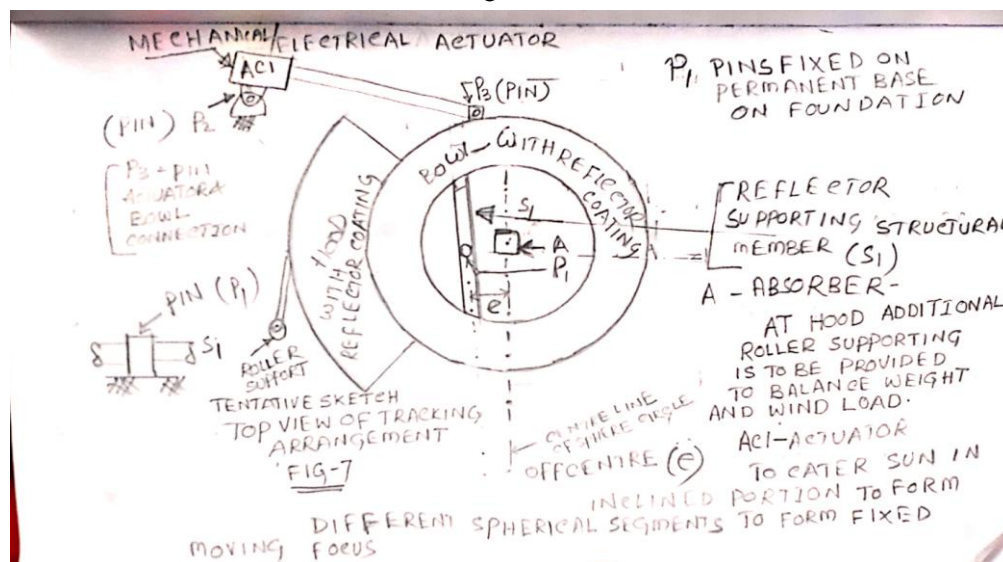 MECHANICAL/ELECTRICAL ACTUATOR
AC1
P3 (PIN)
P1, PINS FIXED ON
PERMANENT BASE
ON FOUNDATION
(PIN) P2
P3 - PIN
ACTUATOR &
BOWL
CONNECTION
BOWL - WITH REFLECTOR
COATING
HOOD
WITH
REFLECTOR COATING
S1
A
P1
e
REFLECTOR
SUPPORTING STRUCTURAL
MEMBER (S1)
A - ABSORBER -
PIN (P1)
S1
ROLLER
SUPPORT
AT HOOD ADDITIONAL
ROLLER SUPPORTING
IS TO BE PROVIDED
TO BALANCE WEIGHT
AND WIND LOAD.
TENTATIVE SKETCH
TOP VIEW OF TRACKING
ARRANGEMENT
FIG-7
CENTRE LINE
OF SPHERE CIRCLE
OFFCENTRE (e)
AC1-ACTUATOR
TO CATER SUN IN
INCLINED PORTION TO FORM
DIFFERENT SPHERICAL SEGMENTS TO FORM FIXED
MOVING FOCUS